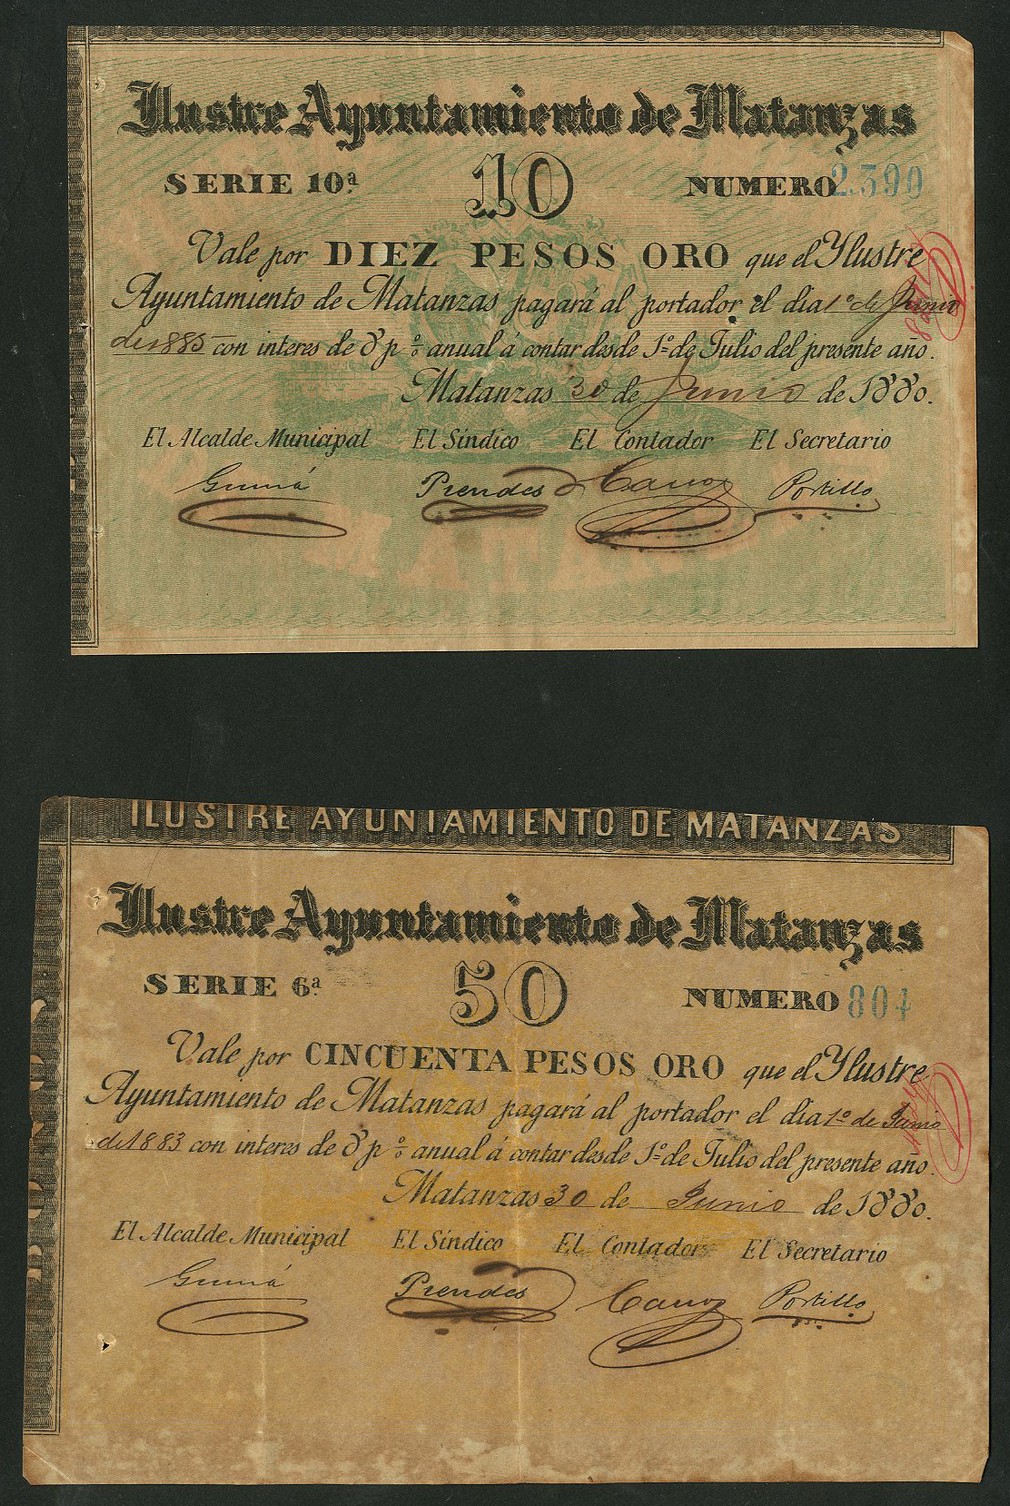 Ilustre Ayuntamiento de Matanzas
SERIE 10ª. 10 NUMERO 2.390
Vale por DIEZ PESOS ORO que el Ylustre
Ayuntamiento de Matanzas pagará al portador el dia 1º de Junio
de 1885 con interes de 8 p% anual á contar desde 1º de Julio del presente año.
Matanzas 30 de Junio de 1880.
El Alcalde Municipal El Síndico El Contador El Secretario
Gumá Prendes Cano Portillo
ILUSTRE AYUNTAMIENTO DE MATANZAS
Ilustre Ayuntamiento de Matanzas
SERIE 6ª. 50 NUMERO 804
Vale por CINCUENTA PESOS ORO que el Ylustre
Ayuntamiento de Matanzas pagará al portador el dia 1º de Junio
de 1883 con interes de 8 p% anual á contar desde 1º de Julio del presente año.
Matanzas 30 de Junio de 1880.
El Alcalde Municipal El Síndico El Contador El Secretario
Gumá Prendes Cano Portillo